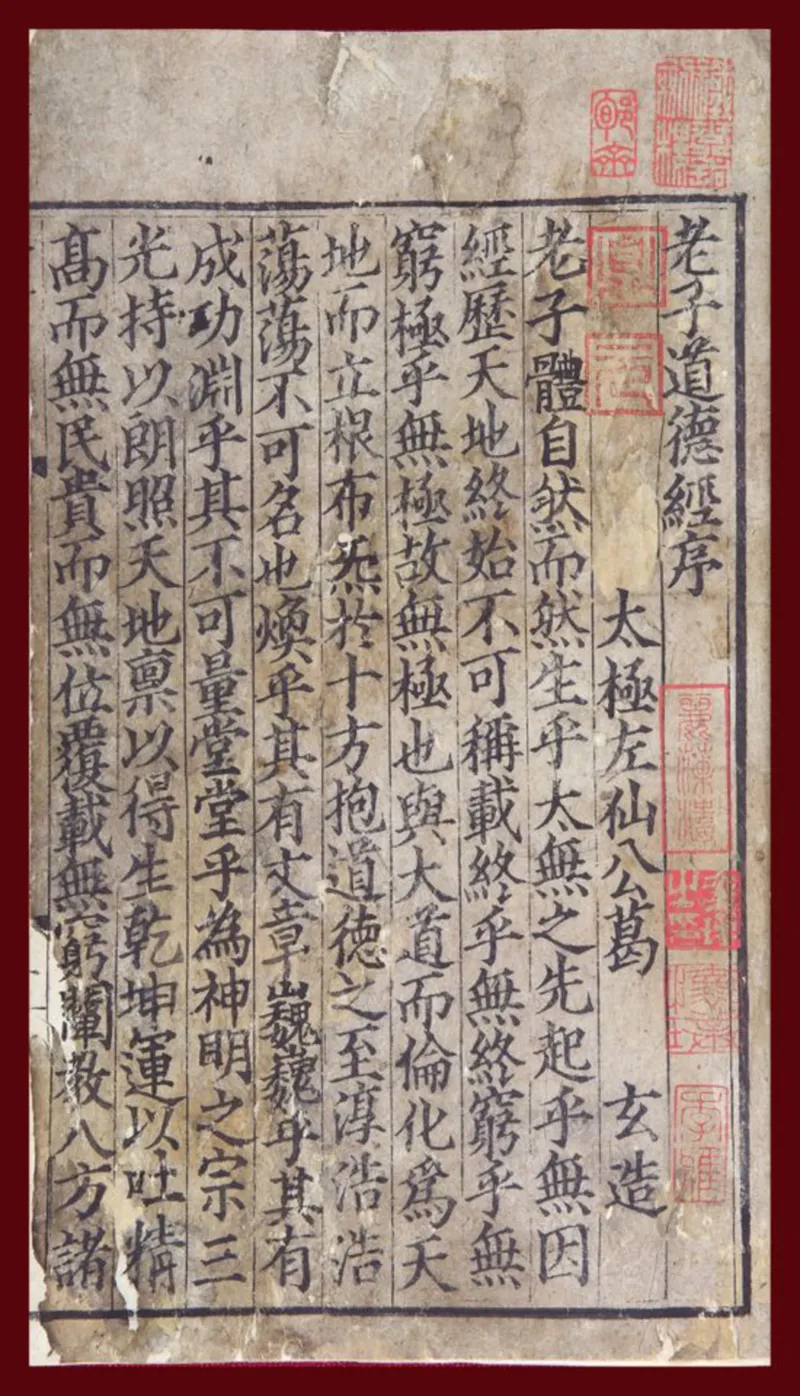 老子道德經序
太極左仙公葛　玄造
老子體自然而然生乎太無之先起乎無因
經歷天地終始不可稱載終乎無終窮乎無
窮極乎無極故無極也與大道而倫化爲天
地而立根布炁於十方抱道德之至淳浩浩
蕩蕩不可名也煥乎其有文章巍巍乎其有
成功淵乎其不可量堂堂乎為神明之宗三
光持以朗照天地稟以得生乾坤運以吐精
髙而無民貴而無位覆載無窮闡教八方諸